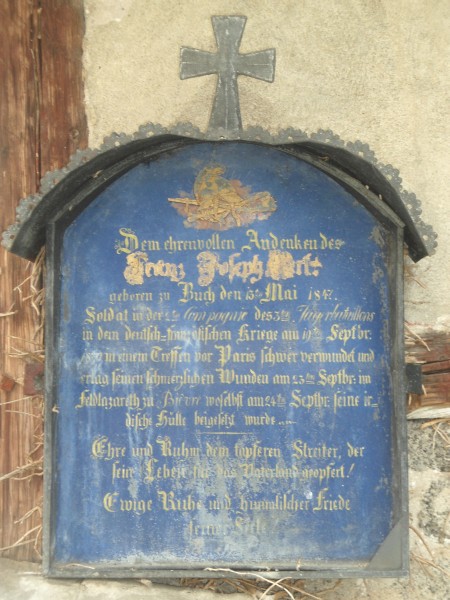 Dem ehrenvollen Andenken des
Joseph
geboren zu Buch den 15ⁿ Mai 1847.
Soldat in der Compagnie des 3ᵗᵉⁿ Jägerbataillons
in dem deutsch-französischen Kriege am 19ᵗᵉⁿ Septbr.
1870 in einem Treffen vor Paris schwer verwundet und
erlag seinen schmerzlichen Wunden am 23ᵗᵉⁿ Septbr. im
Feldlazareth zu woselbst am 24ᵗᵉⁿ Septbr. seine ir-
dische Hülle beigesetzt wurde
Ehre und Ruhm dem tapferen Streiter, der
sein Leben für das Vaterland geopfert!
Ewige Ruhe und himmlischer Friede
seiner Seele